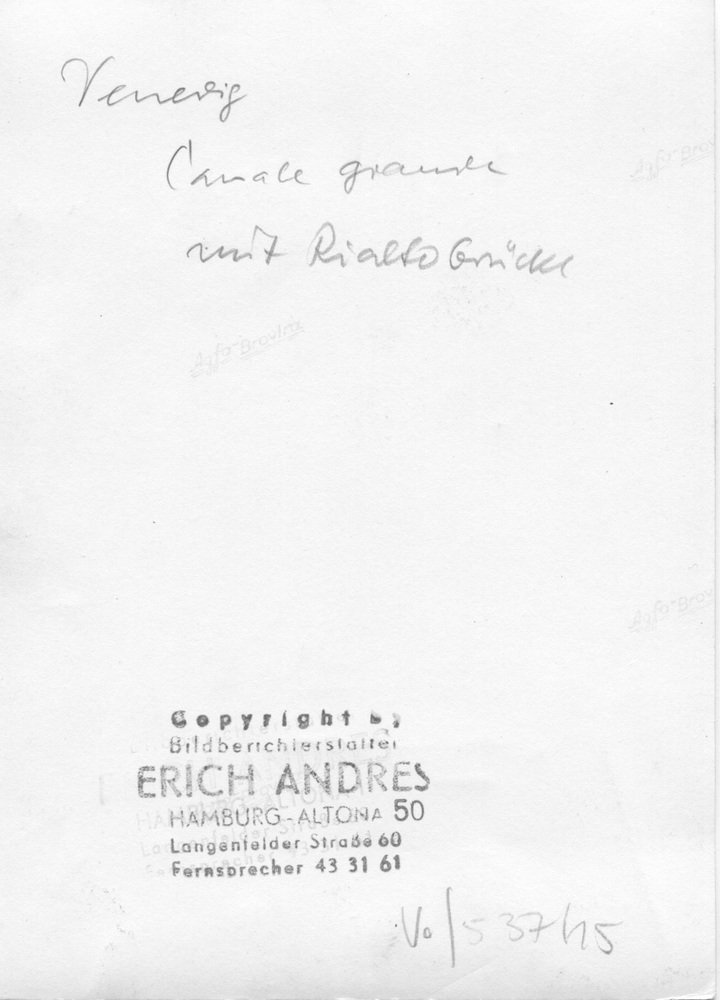 Venedig
Canale grande
mit Rialtobrücke
Agfa-Brovira
Copyright by
Bildberichterstatter
ERICH ANDRES
HAMBURG-ALTONA 50
Langenfelder Straße 60
Fernsprecher 43 31 61
Vo/537/15